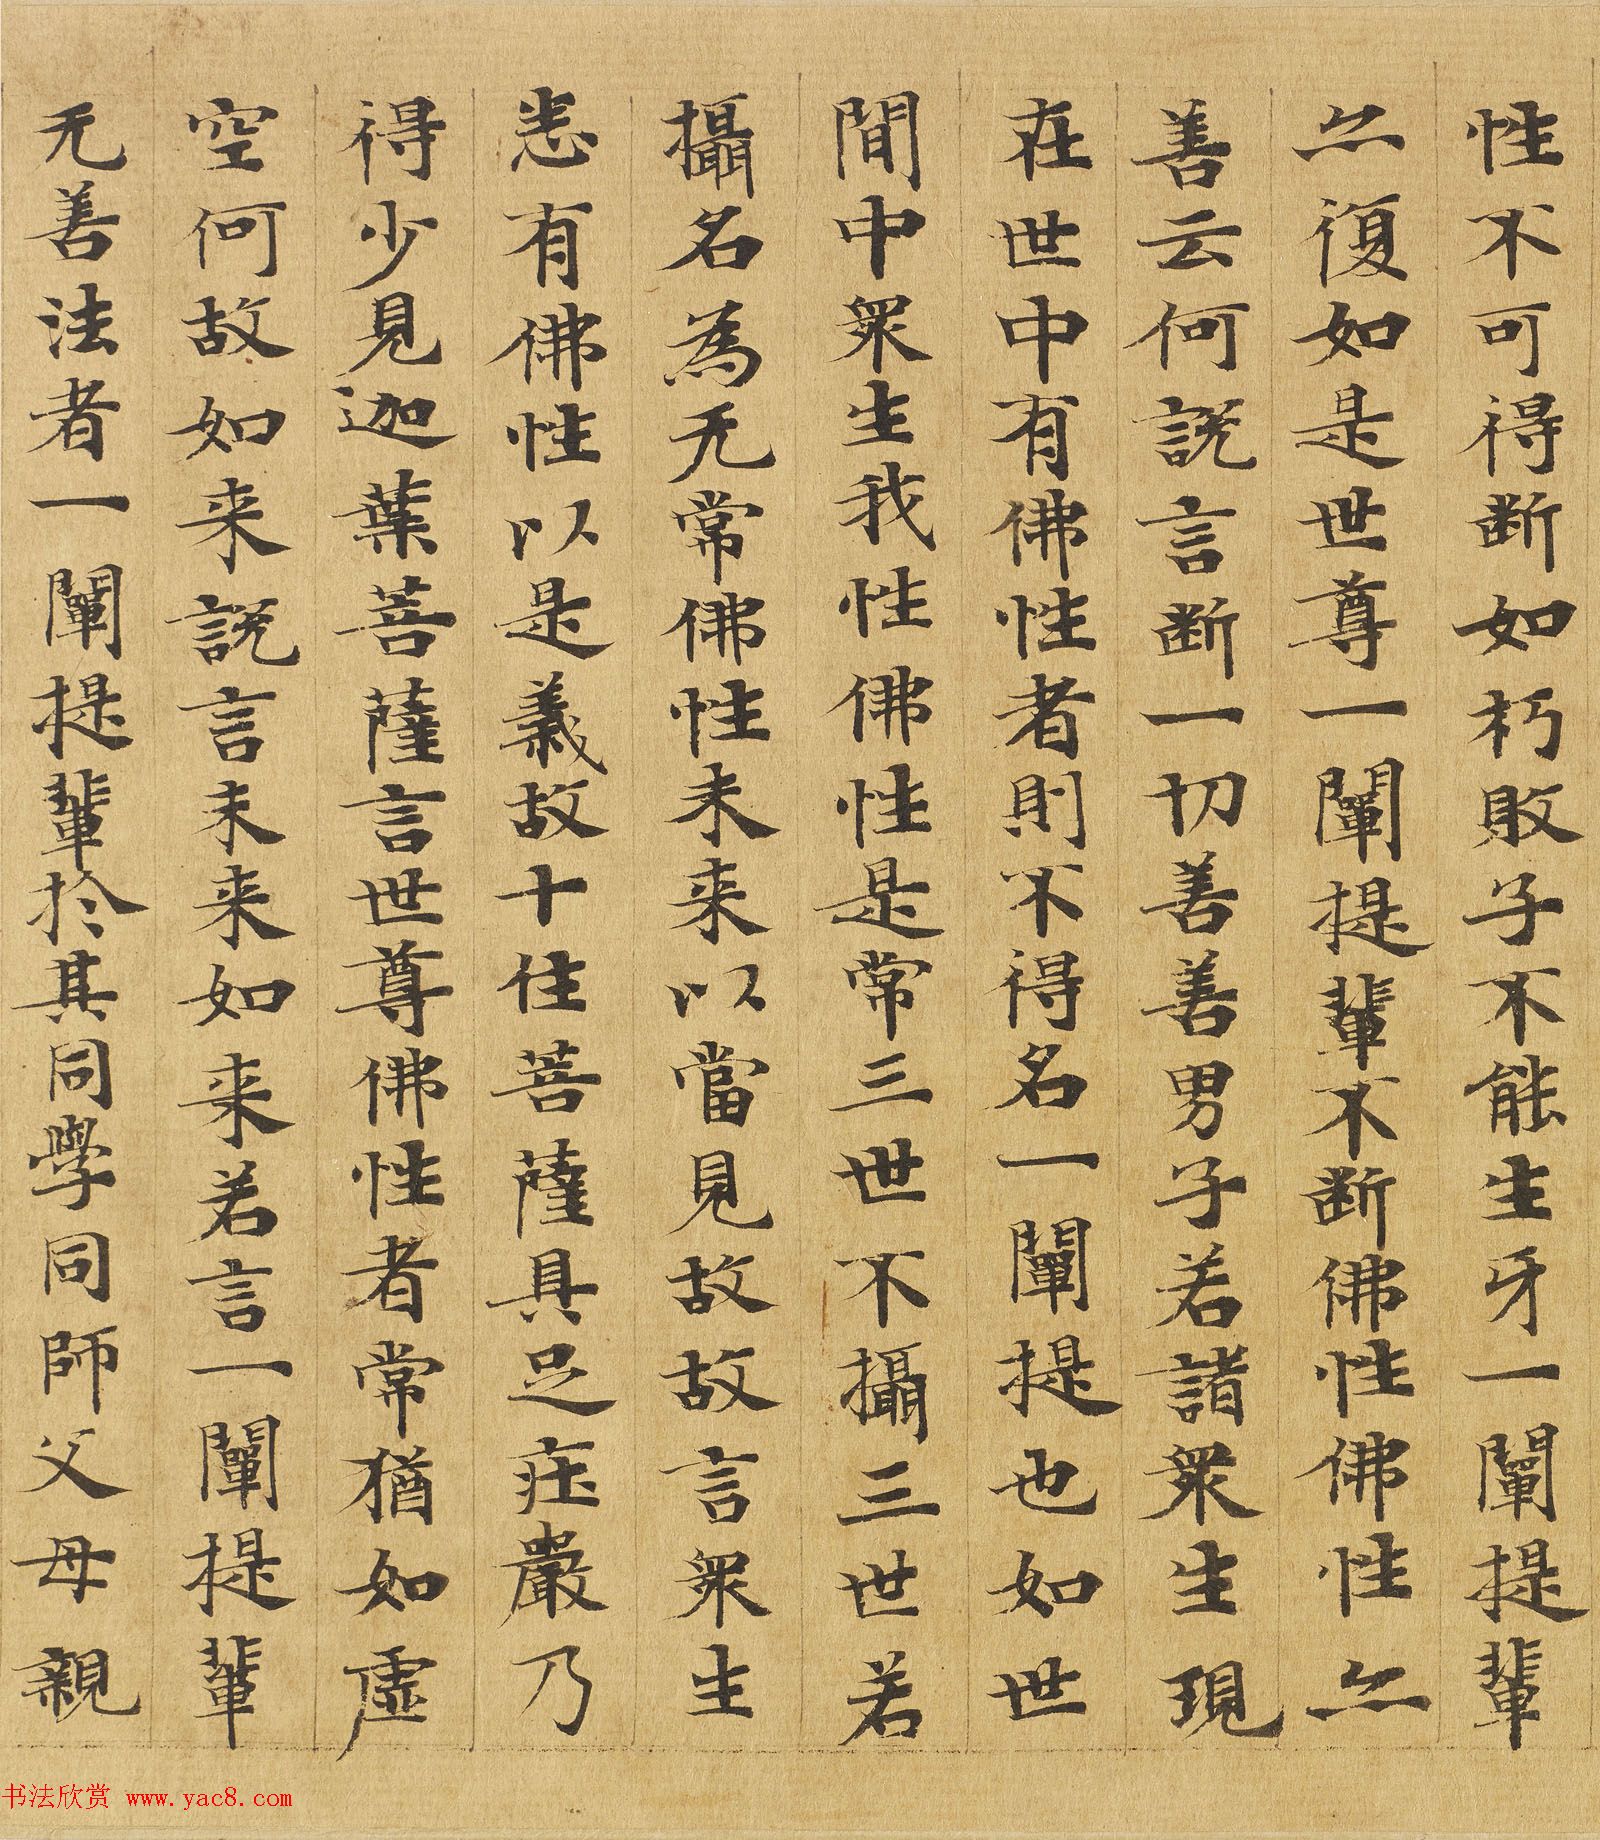 性不可得断如朽敗子不能生牙一闡提輩
亦復如是世尊一闡提輩不断佛性佛性亦
善云何説言断一切善善男子若諸衆生現
在世中有佛性者則不得名一闡提也如世
間中衆生我性佛性是常三世不攝三世若
攝名為无常佛性未来以當見故故言衆生
悉有佛性以是義故十住菩薩具足莊嚴乃
得少見迦葉菩薩言世尊佛性者常猶如虚
空何故如来説言未来如来若言一闡提輩
无善法者一闡提輩於其同學同師父母親
书法欣赏 www.yac8.com